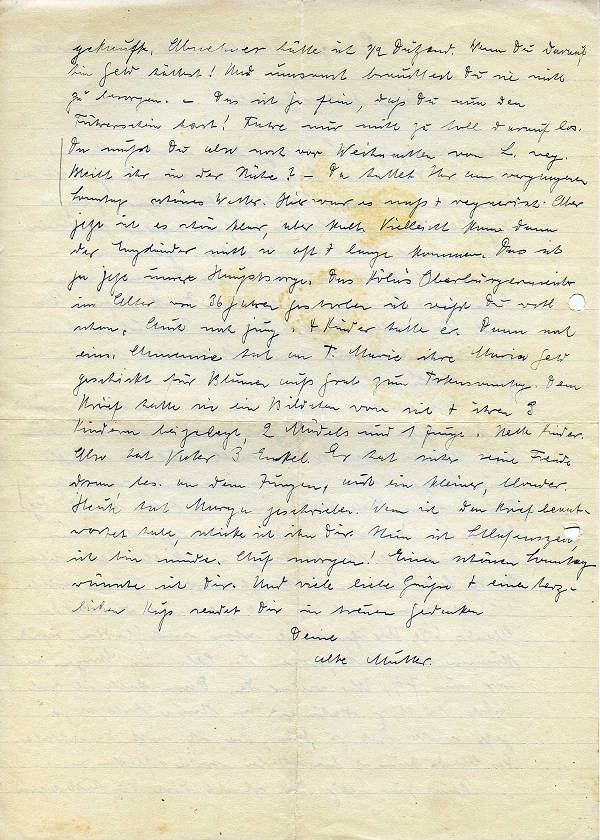 gekauft. Abnehmer hätte ich 1/2 Dutzend. Wenn Du darauf
ein Geld hättest! Und umsonst brauchtest Du sie nicht
zu besorgen. – Das ist ja fein, daß Du nun den
Führerschein hast! Fahre nur nicht zu toll darauf los.
Da mußt Du also noch vor Weihnachten von L. weg.
Bleibt ihr in der Nähe? – Da hattet Ihr am vergangenen
Sonntag schönes Wetter. Hier war es naß + regnerisch. Aber
jetzt ist es schön klar, aber kalt. Vielleicht kann dann
der Engländer nicht so oft + lange kommen. Das ist
ja jetzt unsere Hauptsorge. Das Kölns Oberbürgermeister
im Alter von 36 Jahren gestorben ist weißt Du wohl
schon. Auch noch jung. 4 Kinder hatte er. Dann noch
eins. Annemie hat an T. Marie ihre Maria Geld
geschickt für Blumen aufs Grab zum Totensonntag. Dem
Brief hatte sie ein Bildchen von sich + ihren 3
Kindern beigelegt, 2 Mädels und 1 Junge. Nette Kinder.
Also hat Vater 3 Enkel. Er hat sicher seine Freude
dran bes. an dem Jungen, auch ein kleiner, blonder.
Heut' hat Marga geschrieben. Wenn ich den Brief beant-
wortet habe, schicke ich ihn Dir. Nun ist Schlafenszeit,
ich bin müde. Auf morgen! Einen schönen Sonntag
wünsche ich Dir. Und viele liebe Grüße + einen herz-
lichen Kuß sendet Dir in treuem Gedenken
Deine
alte Mutter.